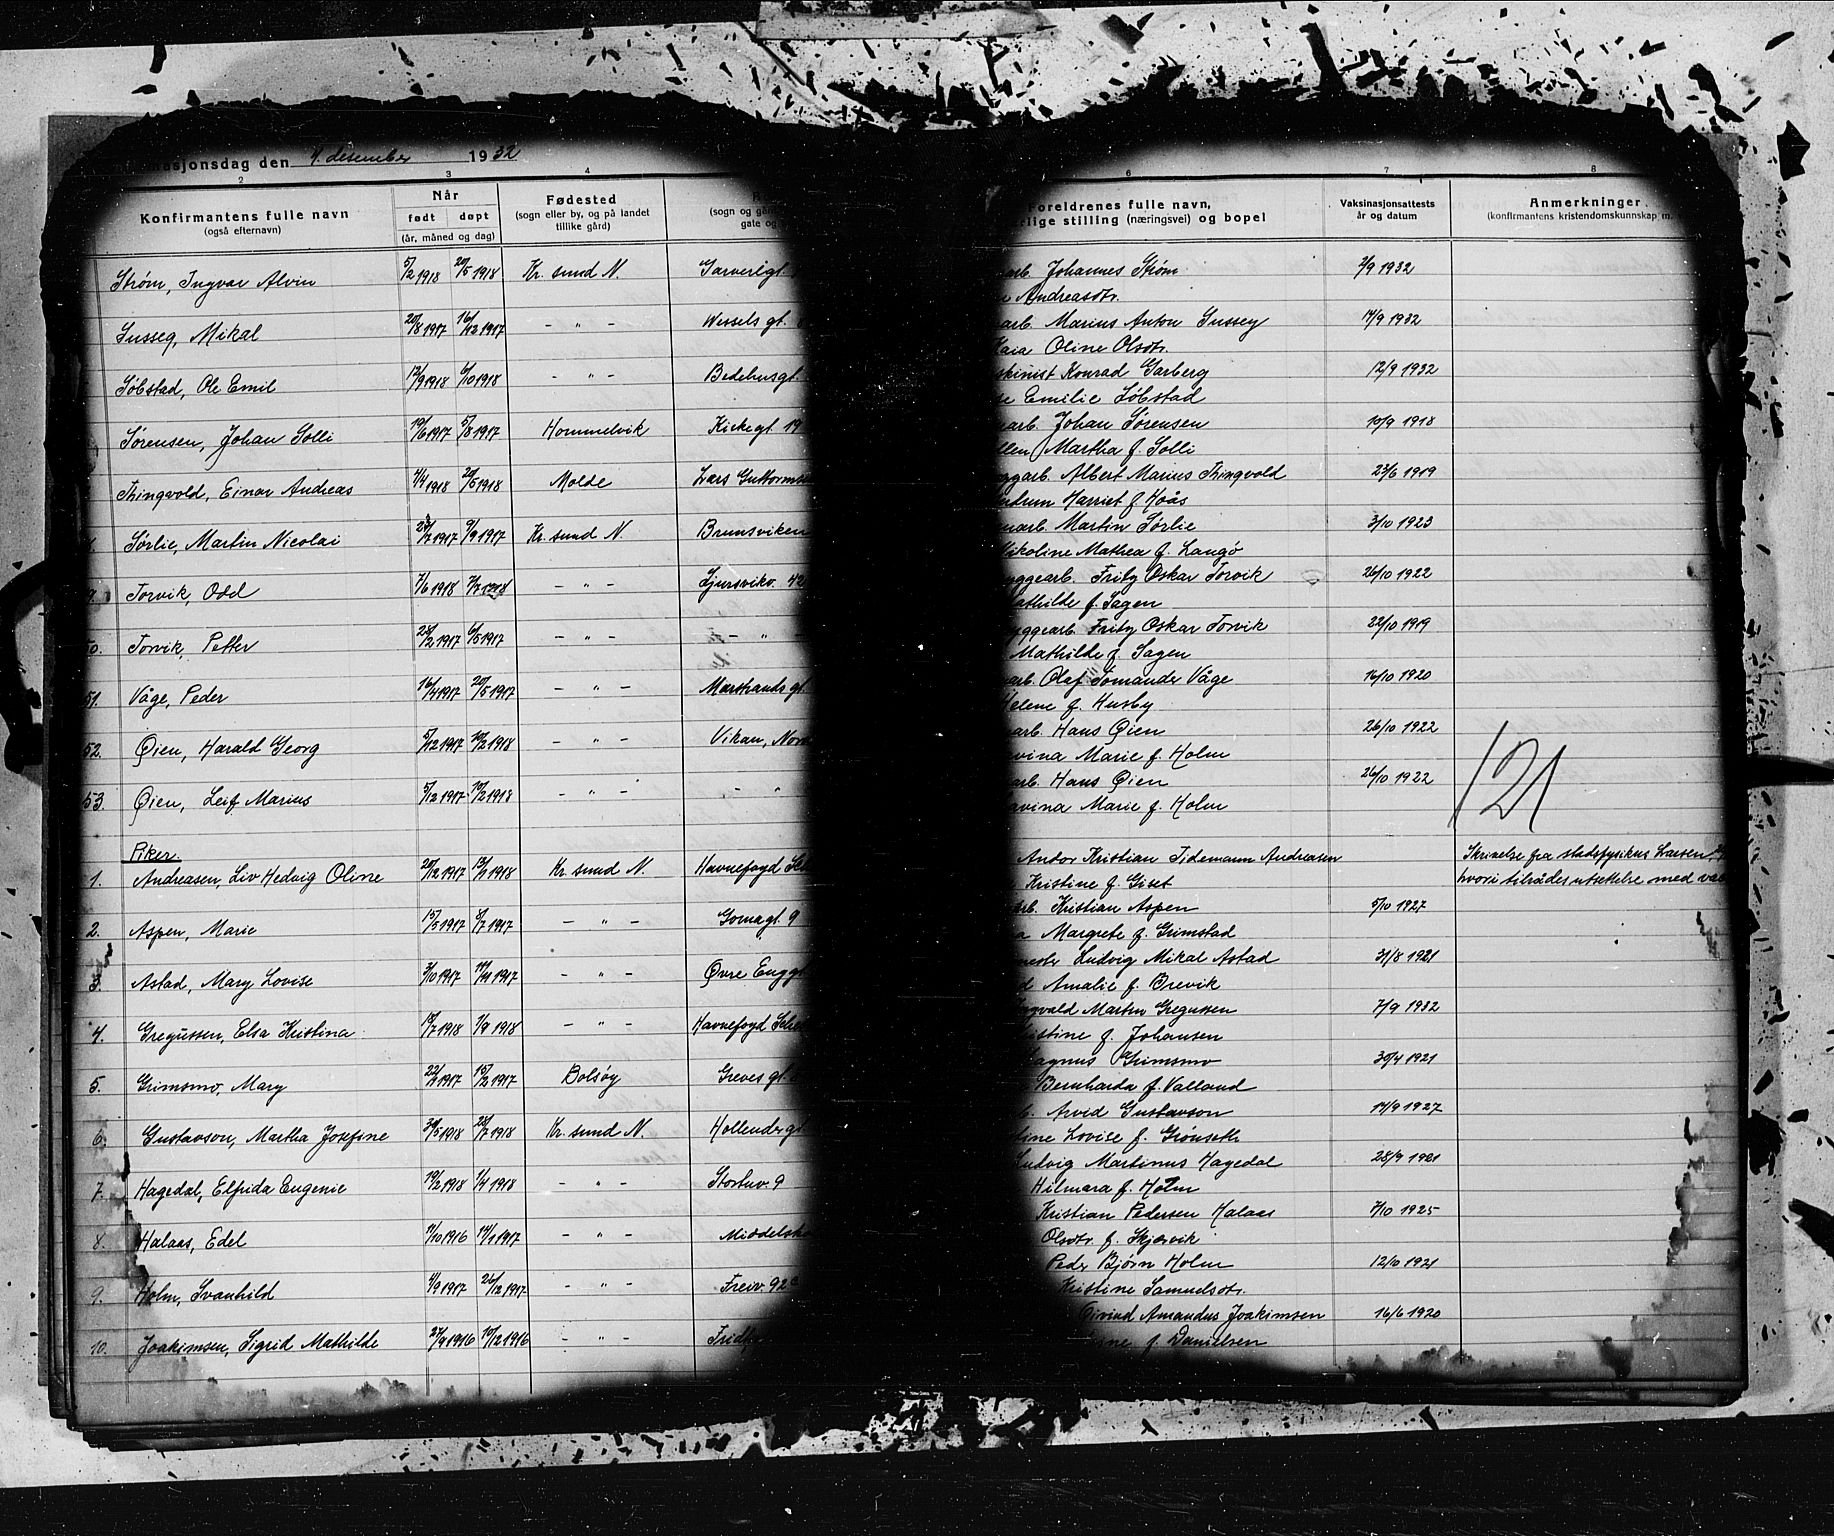 asjonsdag den 4. desember 1932
2 3 4 6 7 8
Konfirmantens fulle navn
(også efternavn)
Når
født døpt
(år, måned og dag)
Fødested
(sogn eller by, og på landet
tillike gård)
(sogn og gå
gate og
Foreldrenes fulle navn,
rlige stilling (næringsvei) og bopel
Vaksinasjonsattests
år og datum
Anmerkninger
(konfirmantens kristendomskunnskap m.
Strøm, Ingvar Alvin 5/2 1918 20/5 1918 Kr. sund N. Garverigt. arb. Johannes Strøm 2/9 1932
Andreasdtr.
Susseg, Mikal 20/8 1917 16/12 1917 - " - Wessels gt. arb. Marius Anton Sussey 17/9 1932
Kaia Oline Olsdtr.
Søbstad, Ole Emil 12/9 1918 6/10 1918 - " - Bedehusgt. skinist Konrad Garberg 12/9 1932
Emilie Søbstad
Sørensen, Johan Solli 19/6 1917 5/8 1917 Hommelvik Kirkegt. 19 arb. Johan Sørensen 10/9 1918
Ellen Martha f. Solli
Thingvold, Einar Andreas 4/4 1918 20/5 1918 Molde Lars Guttormse ggarb. Albert Marius Thingvold 23/6 1919
Gudrun Harriet f. Hoås
Sørlie, Martin Nicolai 24/7 1917 9/9 1917 Kr. sund N. Brunsviken arb. Martin Sørlie 3/10 1923
Nikoline Mathea f. Langø
9. Torvik, Odd 7/6 1918 7/7 1918 - " - Sjursvikv. 42 yggearb. Fritz Oskar Torvik 26/10 1922
Mathilde f. Sagen
50. Torvik, Petter 25/2 1917 6/5 1917 - " - - " - yggearb. Fritz Oskar Torvik 22/10 1919
Mathilde f. Sagen
51. Våge, Peder 16/4 1917 20/5 1917 - " - Marstrands gt. arb. Olaf Tomander Våge 16/10 1920
Helene f. Husby
52. Øien, Harald Georg 5/12 1917 10/2 1918 - " - Vikan, Nord arb. Hans Øien 26/10 1922
vina Marie f. Holm
53. Øien, Leif Marius 5/12 1917 10/2 1918 - " - - " arb. Hans Øien 26/10 1922
avina Marie f. Holm
121
Piker.
1. Andreasen, Liv Hedvig Oline 20/12 1917 13/1 1918 Kr. sund N. Havnefogd Andor Kristian Tidemann Andreasen Skrivelse fra stadsfysikus Larsen,
Kristine f. Giset hvori tilrådes utsettelse med va
2. Aspen, Marie 15/5 1917 8/7 1917 - " - Gomagt. 9 arb. Kristian Aspen 5/10 1927
Margrete f. Grimstad
3. Astad, Mary Lovise 3/10 1917 11/11 1917 - " - Øvre Enggt mestr Ludvig Mikal Astad 31/8 1921
Amalie f. Brevik
4. Gregussen, Elsa Kristina 18/7 1918 1/9 1918 - " - Havnefogd ngvald Martin Gregussen 7/9 1932
istine f. Johansen
5. Grimsmo, Mary 22/1 1917 15/2 1917 Bolsøy Greves gt. Magnus Grimsmo 30/4 1921
Bernharda f. Valland
6. Gustavson, Martha Josefine 30/5 1918 28/7 1918 Kr. sund N. Hollendergt Arvid Gustavson 17/9 1927
tine Lovise f. Grønseth
7. Hagedal, Elfrida Eugenie 19/2 1918 1/4 1918 - " - Stortuv. 9 Ludvig Martinus Hagedal 28/9 1921
Hilmara f. Holm
8. Halaas, Edel 11/10 1916 14/1 1917 - " - Middelsk Kristian Pedersen Halaas 7/10 1925
Olsdtr. f. Skjervik
9. Holm, Svanhild 4/9 1917 26/12 1917 - " - Freiv. 92 Peder Bjørn Holm 12/10 1921
Kristine Samuelsdtr.
10. Joakimsen, Sigrid Mathilde 27/9 1916 10/12 1916 - " - Fridtj Eivind Amandus Joakimsen 16/6 1920
ine f. Danielsen